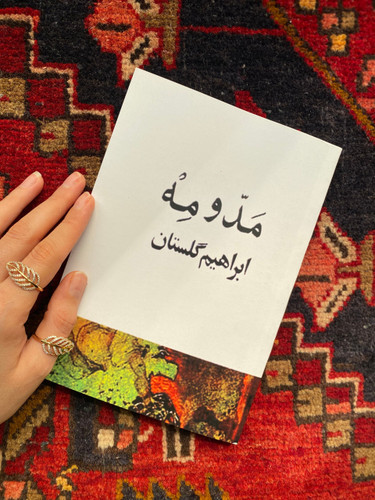 مَدّ و مِهْ
ابراهیم گلستان